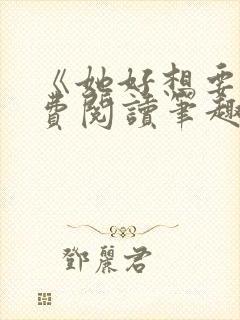 《她好想要
費閱讀筆趣
鄧麗君